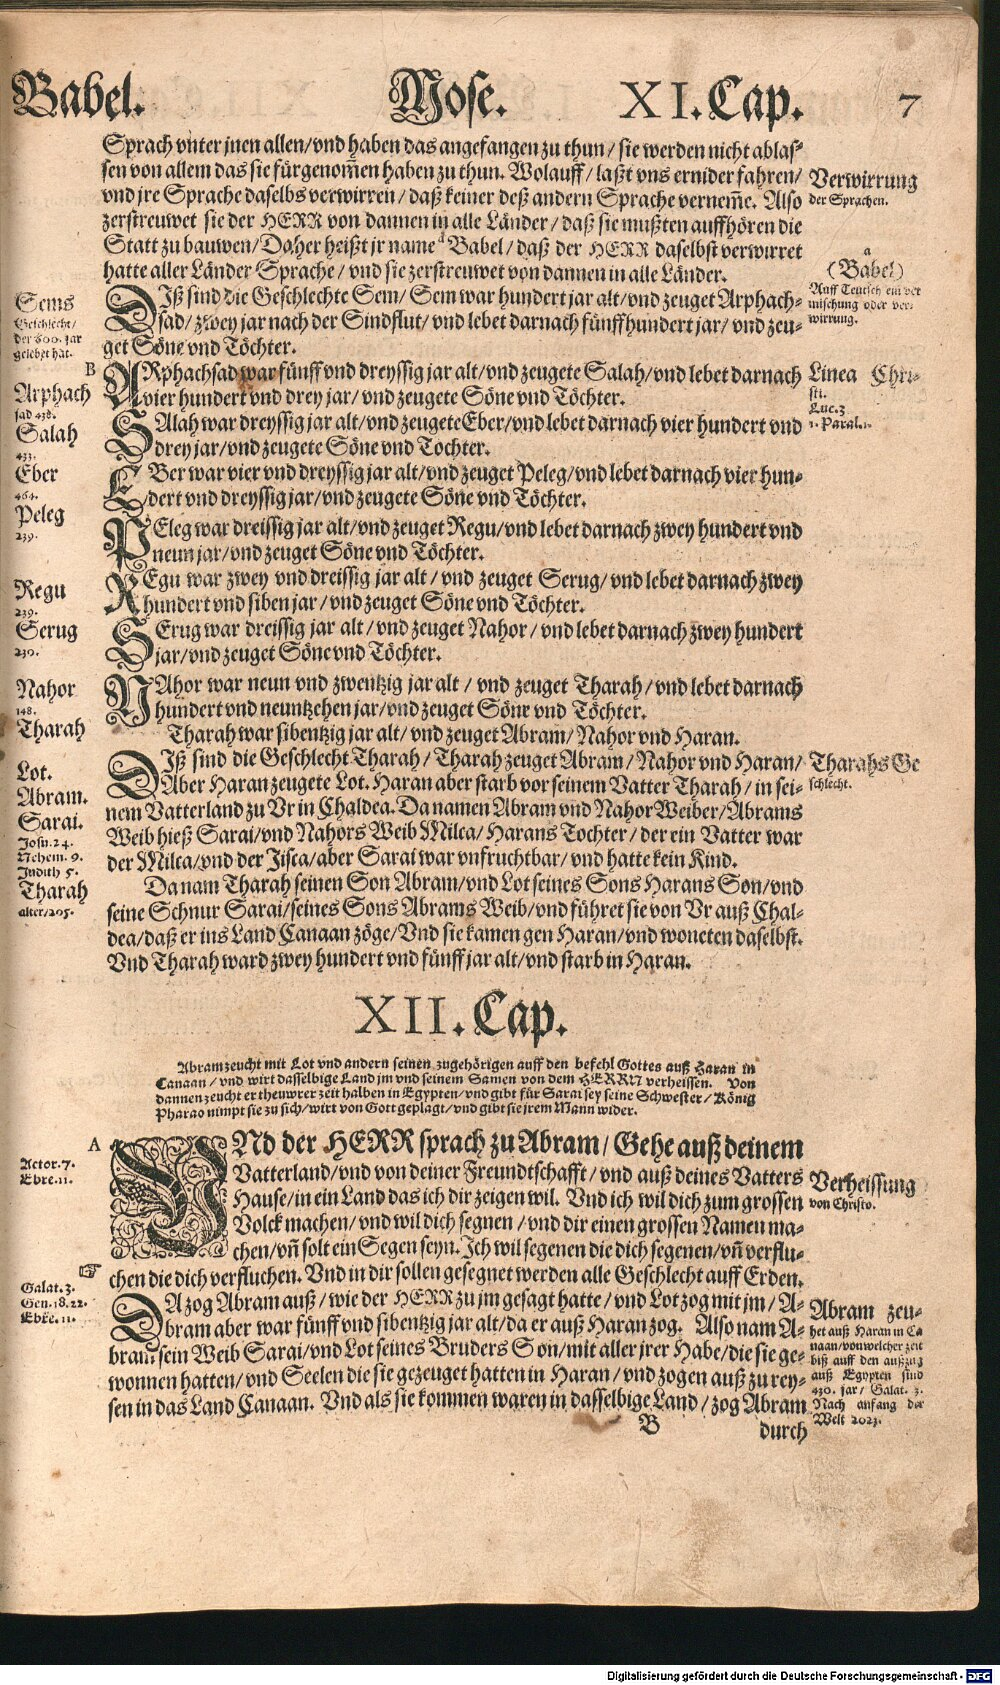 Babel. Mose. XI. Cap. 7
Sprach vnter jnen allen/vnd haben das angefangen zu thun/ sie werden nicht ablas-
sen von allem das sie fürgenom̃en haben zu thun. Wolauff/ laßt vns ernider fahren/
vnd jre Sprache daselbs verwirren/ daß keiner deß andern Sprache vernem̃e. Also
zerstreuwet sie der HERR von dannen in alle Länder/ daß sie mußten auffhören die
Statt zu bauwen/ Daher heißt jr name Babel/ daß der HERR daselbst verwirret
hatte aller Länder Sprache/ vnd sie zerstreuwet von dannen in alle Länder.
Verwirrung
der Sprachen.
a
(Babel)
Auff Teutsch ein ver
mischung oder ver-
wirrung.
Sems
Geschlecht/
der 600. jar
gelebet hat.
DIß sind die Geschlechte Sem/ Sem war hundert jar alt/vnd zeuget Arphach-
sad/ zwey jar nach der Sindflut/ vnd lebet darnach fünffhundert jar/ vnd zeu-
get Söne vnd Töchter.
B
ARphachsad war fünff vnd dreyssig jar alt/vnd zeugete Salah/vnd lebet darnach
vier hundert vnd drey jar/ vnd zeugete Söne vnd Töchter.
Linea Chri-
sti.
Luc. 3
1. Paral. 1.
Arphach
sad 438.
Salah
433.
Eber
464.
Peleg
239.
SAlah war dreyssig jar alt/vnd zeugete Eber/vnd lebet darnach vier hundert vnd
drey jar/vnd zeugete Söne vnd Tochter.
EBer war vier vnd dreyssig jar alt/vnd zeuget Peleg/vnd lebet darnach vier hun-
dert vnd dreyssig jar/vnd zeugete Söne vnd Töchter.
PEleg war dreissig jar alt/vnd zeuget Regu/vnd lebet darnach zwey hundert vnd
neun jar/vnd zeuget Söne vnd Töchter.
Regu
239.
Serug
230.
REgu war zwey vnd dreissig jar alt/ vnd zeuget Serug/ vnd lebet darnach zwey
hundert vnd siben jar/ vnd zeuget Söne vnd Töchter.
SErug war dreissig jar alt/ vnd zeuget Nahor/ vnd lebet darnach zwey hundert
jar/vnd zeuget Söne vnd Töchter.
Nahor
148.
Tharah
NAhor war neun vnd zwentzig jar alt/ vnd zeuget Tharah/vnd lebet darnach
hundert vnd neuntzehen jar/vnd zeuget Söne vnd Töchter.
Tharah war sibentzig jar alt/ vnd zeuget Abram/ Nahor vnd Haran.
DIß sind die Geschlecht Tharah/ Tharah zeuget Abram/ Nahor vnd Haran/
Aber Haran zeugete Lot. Haran aber starb vor seinem Vatter Tharah/ in sei-
nem Vatterland zu Vr in Chaldea. Da namen Abram vnd Nahor Weiber/Abrams
Weib hieß Sarai/vnd Nahors Weib Milca/ Harans Tochter/ der ein Vatter war
der Milca/vnd der Jisca/aber Sarai war vnfruchtbar/ vnd hatte kein Kind.
Tharahs Ge
schlecht.
Lot.
Abram.
Sarai.
Josu. 24.
Nehem. 9.
Judith 5.
Tharah
alter/205.
Da nam Tharah seinen Son Abram/vnd Lot seines Sons Harans Son/vnd
seine Schnur Sarai/seines Sons Abrams Weib/vnd führet sie von Vr auß Chal-
dea/daß er ins Land Canaan zöge/Vnd sie kamen gen Haran/vnd woneten daselbst.
Vnd Tharah ward zwey hundert vnd fünff jar alt/vnd starb in Haran.
XII. Cap.
Abram zeucht mit Lot vnd andern seinen zugehörigen auff den befehl Gottes auß Haran in
Canaan/ vnd wirt dasselbige Land jm vnd seinem Samen von dem HERRN verheissen. Von
dannen zeucht er theuwrer zeit halben in Egypten/vnd gibt für Sarai sey seine Schwester/König
Pharao nimpt sie zu sich/ wirt von Gott geplagt/vnd gibt sie jrem Mann wider.
A
VNd der HERR sprach zu Abram/ Gehe auß deinem
Vatterland/vnd von deiner Freundtschafft/ vnd auß deines Vatters
Hause/in ein Land das ich dir zeigen wil. Vnd ich wil dich zum grossen
Volck machen/ vnd wil dich segnen/ vnd dir einen grossen Namen ma-
chen/vñ solt ein Segen seyn. Ich wil segenen die dich segenen/vñ verflu-
chen die dich verfluchen. Vnd in dir sollen gesegnet werden alle Geschlecht auff Erden.
Actor. 7.
Ebre. 11.
Verheissung
von Christo.
Galat. 3.
Gen. 18. 22.
Ebre. 11.
DA zog Abram auß/ wie der HERR zu jm gesagt hatte/ vnd Lot zog mit jm/ A-
bram aber war fünff vnd sibentzig jar alt/da er auß Haran zog. Also nam A-
bram sein Weib Sarai/vnd Lot seines Bruders Son/mit aller jrer Habe/die sie ge-
wonnen hatten/vnd Seelen die sie gezeuget hatten in Haran/ vnd zogen auß zu rey-
sen in das Land Canaan. Vnd als sie kommen waren in dasselbige Land/ zog Abram
Abram zeu-
het auß Haran in Ca
naan/von welcher zeit
biß auff den außzug
auß Egypten sind
430. jar/ Galat. 3.
Nach anfang der
Welt 2023.
B durch
Digitalisierung gefördert durch die Deutsche Forschungsgemeinschaft - DFG